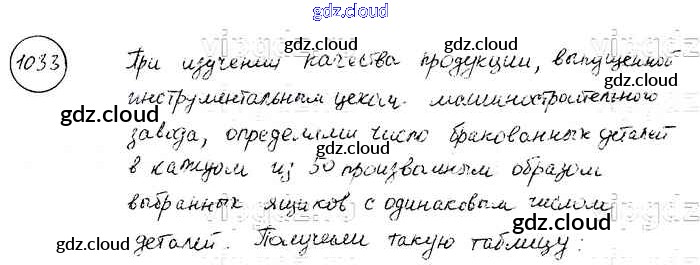 gdz.cloud
1033 При изучении качества продукции, выпущенной
инструментальным цехом машиностроительного
завода, определяли число бракованных деталей
в каждом из 50 произвольным образом
выбранных ящиков с одинаковым числом
деталей. Получили такую таблицу:
gdz.cloud
gdz.cloud
gdz.cloud
gdz.cloud
gdz.cloud
gdz.cloud
gdz.cloud
gdz.cloud
gdz.cloud
gdz.cloud